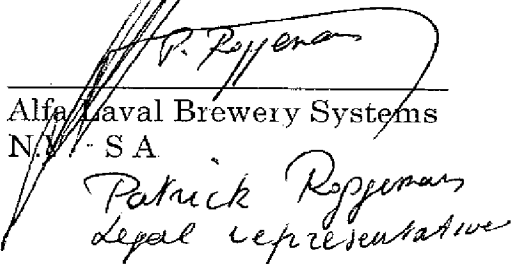 P. Roggemans
Alfa Laval Brewery Systems
N.V. - S A
Patrick Roggemans
Legal representative